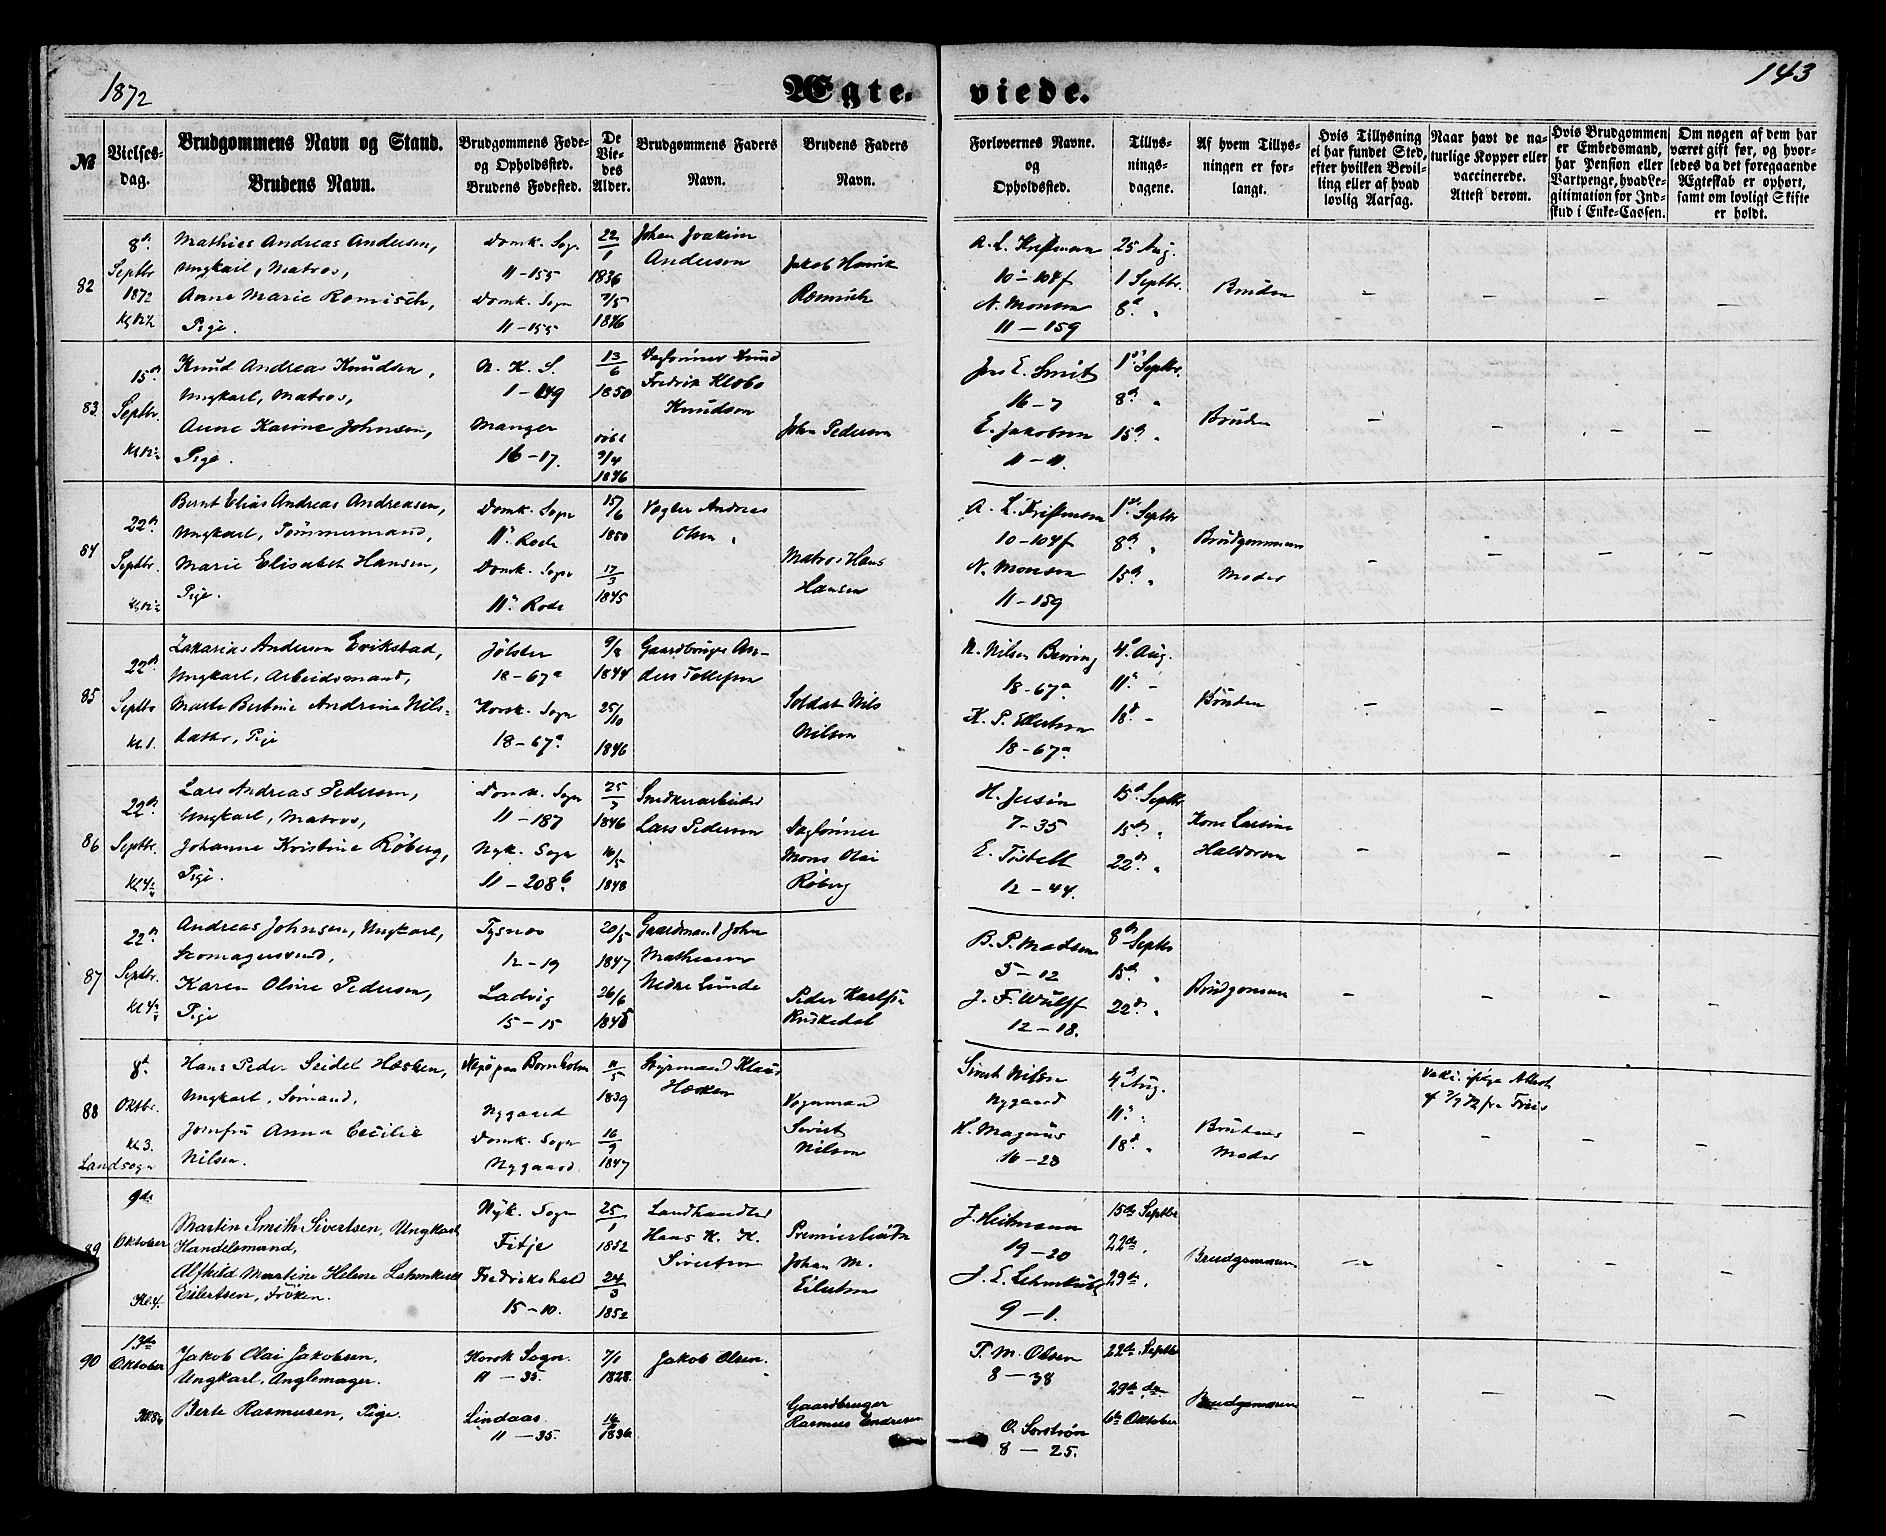 1872
Ægte-
viede.
143
№
Vielses-
dag.
Brudgommens Navn og Stand.
Brudens Navn.
Brudgommens Føde-
og Opholdssted.
Brudens Fødested.
De
Vie-
des
Alder.
Brudgommens Faders
Navn.
Brudens Faders
Navn.
Forlovernes Navne.
og
Opholdssted.
Tillys-
nings-
dagene.
Af hvem Tillys-
ningen er for-
langt.
Hvis Tillysning
ei har fundet Sted,
efter hvilken Bevil-
ling eller af hvad
lovlig Aarsag.
Naar havt de na-
turlige Kopper eller
vaccinerede.
Attest derom.
Hvis Brudgommen
er Embedsmand,
har Pension eller
Vartpenge, hvad Le-
gitimation for Ind-
skud i Enke-Cassen.
Om nogen af dem har
været gift før, og hvor-
ledes da det foregaaende
Ægteskab er ophørt,
samt om lovligt Skifte
er holdt.
82
8de
Septbr
1872
Mathias Andreas Andersen,
Ungkarl, Matros,
Anne Marie Romisch,
Pige.
Domk. Sogn
11-155
Domk. Sogn
11-155
22/1
1836
7/5
1846
Johan Joakim
Andersen
Jakob Henrik
Romisch
A. L. Kristensen
10-104f
N. Monsen
11-159
25 Aug.
1 Septbr.
8de "
Bruden
83.
15de
Septbr.
Knud Andreas Knudsen,
Ungkarl, Matros,
Anne Karine Johnsen,
Pige.
N. K. S.
1-149
Manger
16-17.
13/6
1850
døbt
9/4
1846
Dagleiner Knud
Fredrik Klebo
Knudsen
John Pederson
Jens E. Smit
16-7
E. Jakobsen
11-11.
1ste Septbr.
8de "
15de "
Bruden
84
22de
Septbr.
Bernt Elias Andreas Andreasen,
Ungkarl, Tømmermand,
Marie Elisabet Hansen,
Pige.
Domk. Sogn
11te Rode
Domk. Sogn
11te Rode
15/6
1850
17/3
1845
Vogter Andreas
Olsen
Matros Hans
Hansen
A. L. Kristensen
10-104f
N. Monsen
11-159
1ste Septbr
8de "
15de "
Brudgommens
Moder
85
22de
Septbr
Kl 1.
Zakarias Anderson Erikstad,
Ungkarl, Arbeidsmand,
Marte Bertine Andrine Nils-
datter, Pige
Jølster
18-67a
Korsk. Sogn
18-67a
9/8
1844
25/10
1846
Gaardbruger An-
ders Tollefsen
Soldat Nils
Nilsen
18-67a
K. P. Ellertsen
18-67a
4de Aug.
11te -
18de -
Bruden
86
22de
Septbr.
Lars Andreas Pedersen,
Ungkarl, Matros,
Johanne Kristine Røberg,
Pige.
Domk. Sogn
11-187
Nyk. Sogn
11-208b
25/3
1846
16/5
1848
Snedkerarbeider
Lars Pederson
Dagleiner
Mons Olai
Røberg
H. Jersin
7-35
12-44.
15de Septbr
15de "
22de "
Kone Larsine
Haldorsen
87
22de
Septbr.
Andreas Johnsen, Ungkarl,
Skomagersvend,
Karen Oline Pedersen,
Pige
Tysnes
12-19
Ladvig
15-15
20/5
1847
26/6
1845
Gaardmand John
Mathiesen
Nedre Lunde
Peder Karlsen
Ruskedal
B. P. Madsen
5-12
J. F. Wulff
12-18.
8de Septbr
15de "
22de "
Brudgommen
88
8de
Oktbr.
Kl 3.
Landsogn
Hans Peder Seidel Hesken,
Ungkarl, Sømand,
Jomfru Anna Cecilie
Nilsen.
Nexø paa Bornholm
Nygaard
Domk. Sogn
Nygaard
11/5
1839
16/9
1847
Styrmand Klaus
Hesken
Vognmand
Sivert
Nilson
Sivert Nilson
Nygaard
H. Magnus
16-28
4de Aug.
11te "
18de "
Brudens
Moder
89
9de
Oktober
Kl 4.
Martin Smith Sivertsen, Ungkarl,
Handelsmand,
Alfhild Martine Helene Lehmkuhl
Eilertsen, Frøken.
Nyk. Sogn
Fitje
Fredrikshald
15-10.
25/1
1852
24/3
1852
Landhandler
Hans K. K.
Sivertsen
Premierløitn
Johan M.
Eilertsen
J. Heitmann
19-20
J. E. Lehmkuhl
9-1.
15de Septbr
22de "
29de "
Brudgommen
90
13de
Oktober
Jakob Olai Jakobsen,
Ungkarl, Anglemager.
Berte Rasmusen, Pige.
Korsk Sogn.
11-35.
Lindaas.
11-35.
7/1
1828
1836
Jakob Olsen.
Gaardbruger
Rasmus Endresen
P. M. Olsen
8-38
O. Sorstrøn
8-25.
22de Septbr
29de do
6te Oktober
Brudgommen